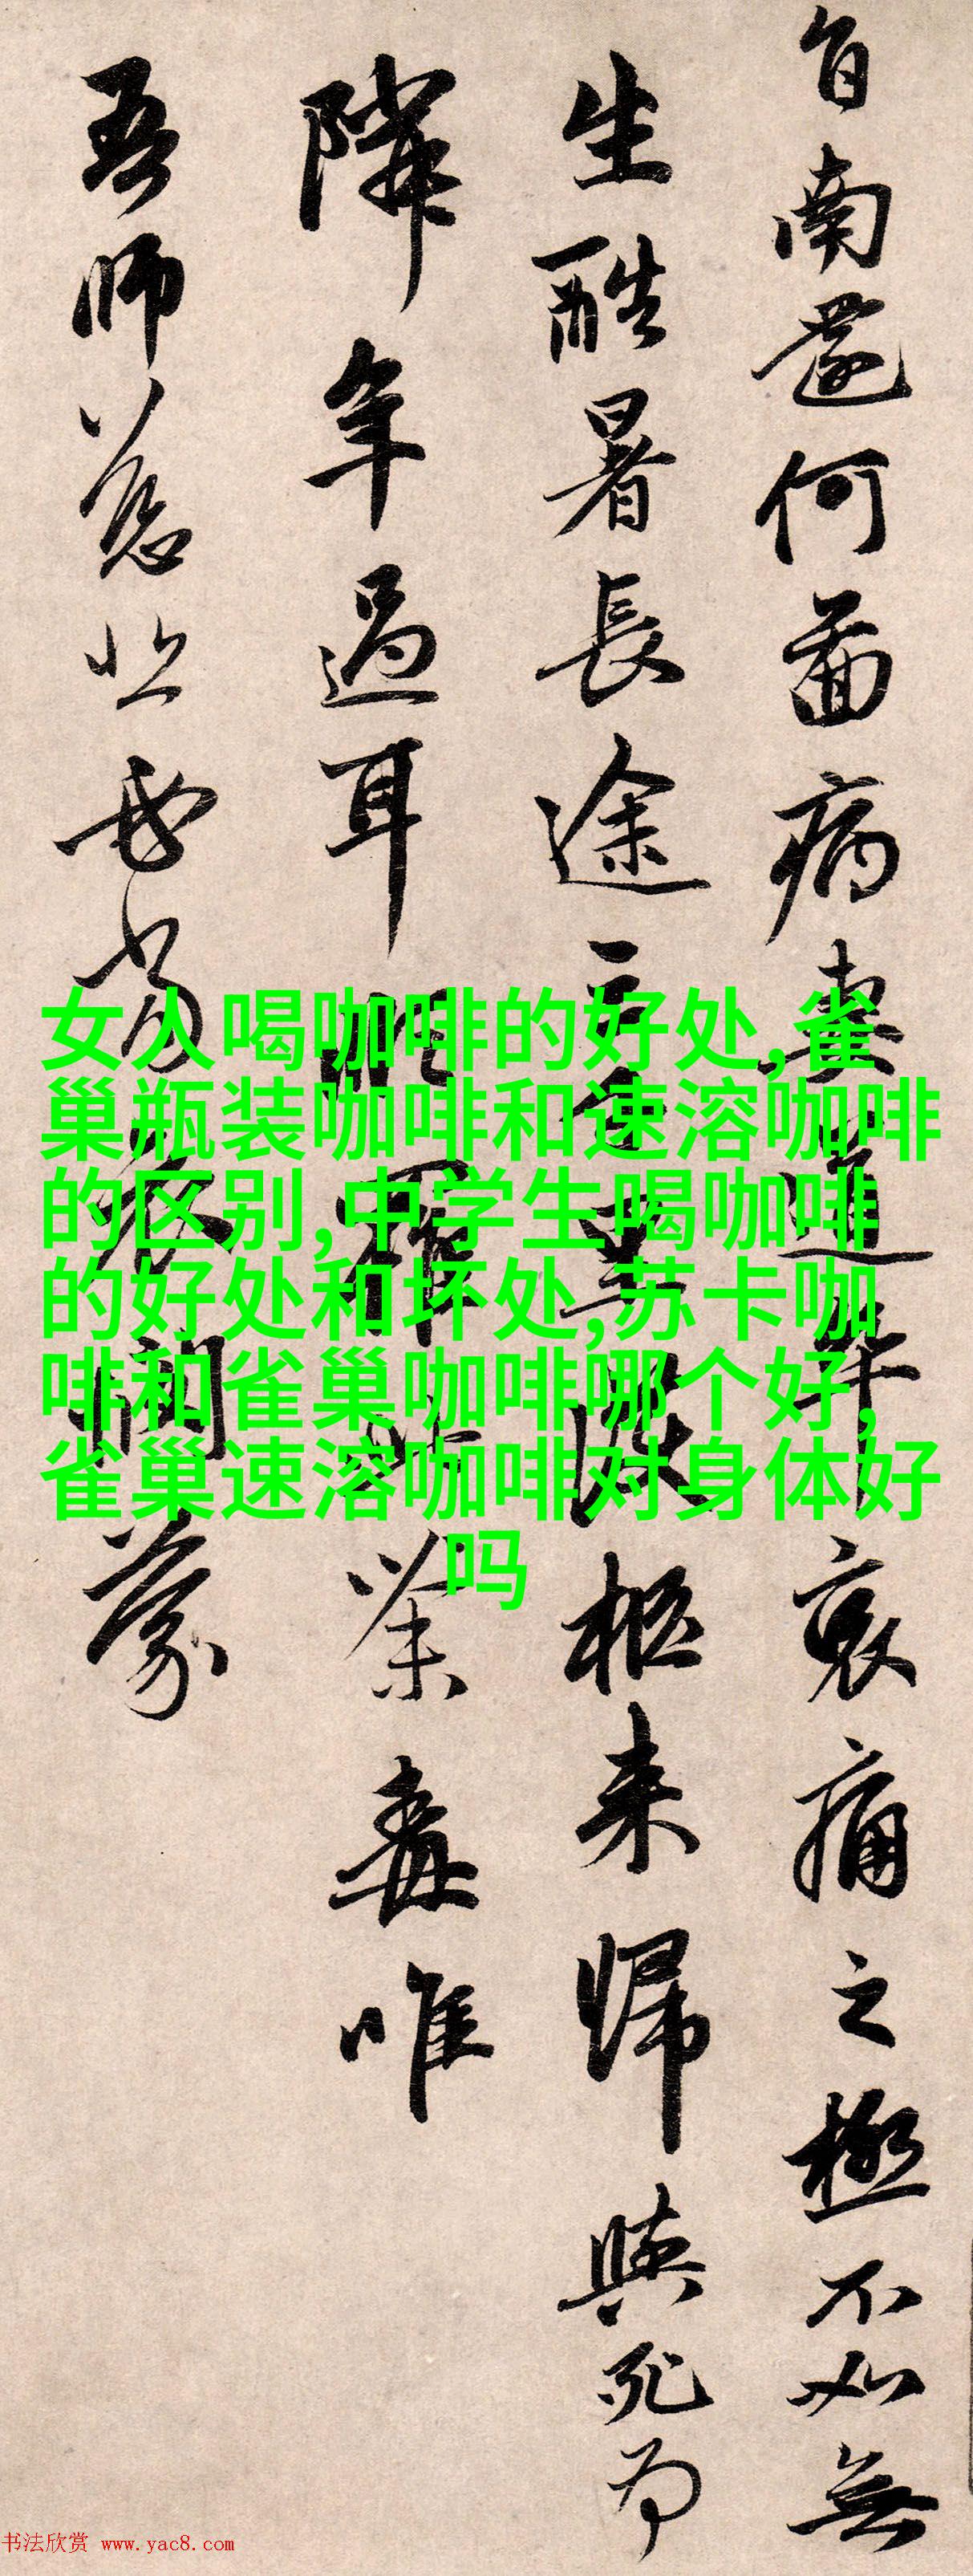 自南還何啚病妻道卒哀痛之極不如無
生酷暑長途三千里護柩來歸與死為
隣年過耳順罹此荼毒唯
吾師慈悲必當哀憫蒙
女人喝咖啡的好处,雀
巢瓶装咖啡和速溶咖啡
的区别,中学生喝咖啡
的好处和坏处,苏卡咖
啡和雀巢咖啡哪个好,
雀巢速溶咖啡对身体好
吗
书法欣赏 www.yac8.com